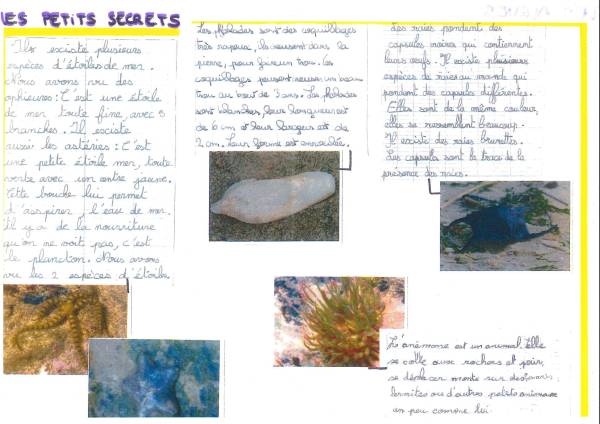 LES PETITS SECRETS
Ils existe plusieurs
espèces d'étoiles de mer.
Nous avons vu des
ophieures : C'est une étoile
de mer, toute fine, avec 5
branches. Il existe
aussi les astéries : C'est
une petite étoile mer, toute
verte avec un centre jaune.
Cette bouche lui permet
d'aspirer l'eau de mer.
il y a de la nourriture
qu'on ne voit pas, c'est
le plancton. Nous avons
vu les 2 espèces d'étoile.
Les pholades sont des coquillages
très rapeux, ils creusent dans la
pierre, pour faire un trou. Les
coquillages peuvent creuser un beau
trou au bout de 3 ans. Les pholades
sont blanches, leur longueur est
de 6 cm et leur largeur est de
2 cm. Leur forme est arrondie.
Les raies pondent des
capsules noires qui contiennent
leurs œufs. Il existe plusieurs
espèces de raies au monde qui
pondent des capsules différentes.
Elles sont de la même couleur,
elles se ressemblent beaucoup.
Il existe des raies brunettes.
Les capsules sont la trace de la
présence des raies.
L'anémone est un animal. Elle
se colle aux rochers et pour
se déplacer monte sur des
bernites ou d'autres petits animaux
un peu comme lui.